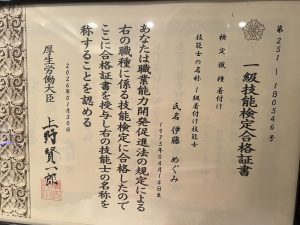 第251-1B0546号
一級技能検定合格証書
検定職種 着付け
技能士の名称 1級着付け技能士
氏名 伊藤 めぐみ
1975年04月14日生
あなたは職業能力開発促進法の規定による
右の職種に係る技能検定に合格したので
ここに合格証書を授与し右の技能士の名称を
称することを認める
2026年01月30日
厚生労働大臣 上野 賢一郎